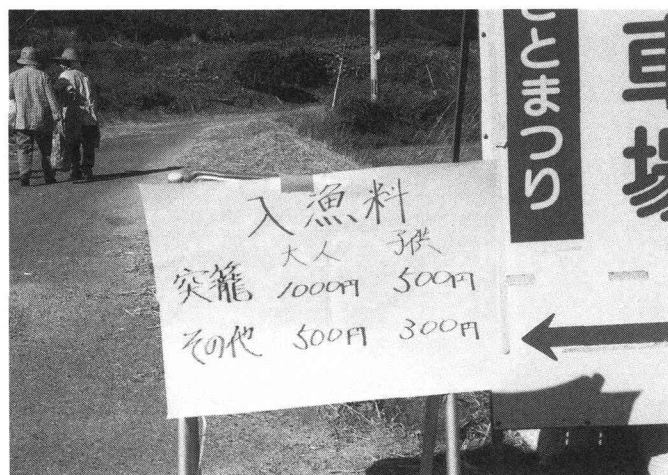 入漁料
大人 子供
突籠 1000円 500円
その他 500円 300円
とまつり
場